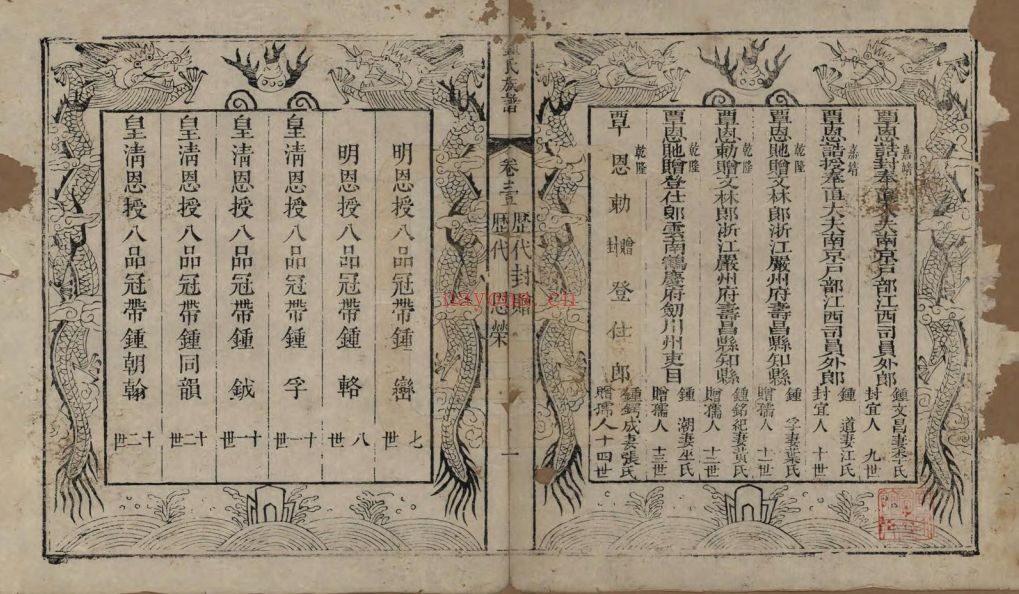 嘉靖
覃恩誥封奉直大夫南京戶部江西司員外郎
鍾文昌妻李氏
封宜人 九世
嘉靖
覃恩誥授奉直大夫南京戶部江西司員外郎
鍾 道妻江氏
封宜人 十世
乾隆
覃恩貤贈文林郎浙江嚴州府壽昌縣知縣
鍾 孚妻葉氏
贈孺人 十一世
乾隆
覃恩勅贈文林郎浙江嚴州府壽昌縣知縣
鍾銘紀妻黃氏
贈孺人 十二世
乾隆
覃恩貤贈登仕郎雲南鶴慶府劒川州吏目
鍾 潮妻巫氏
贈孺人 十三世
乾隆
覃恩勅贈封登仕郎
鍾 成妻張氏
贈孺人十四世
氏族譜
卷壹 歷代封贈
歷代恩榮
一
明恩授八品冠帶鍾 巒 七世
明恩授八品冠帶鍾 輅 八世
皇清恩授八品冠帶鍾 孚 十一世
皇清恩授八品冠帶鍾 鉞 十一世
皇清恩授八品冠帶鍾同韻 十二世
皇清恩授八品冠帶鍾朝翰 十二世